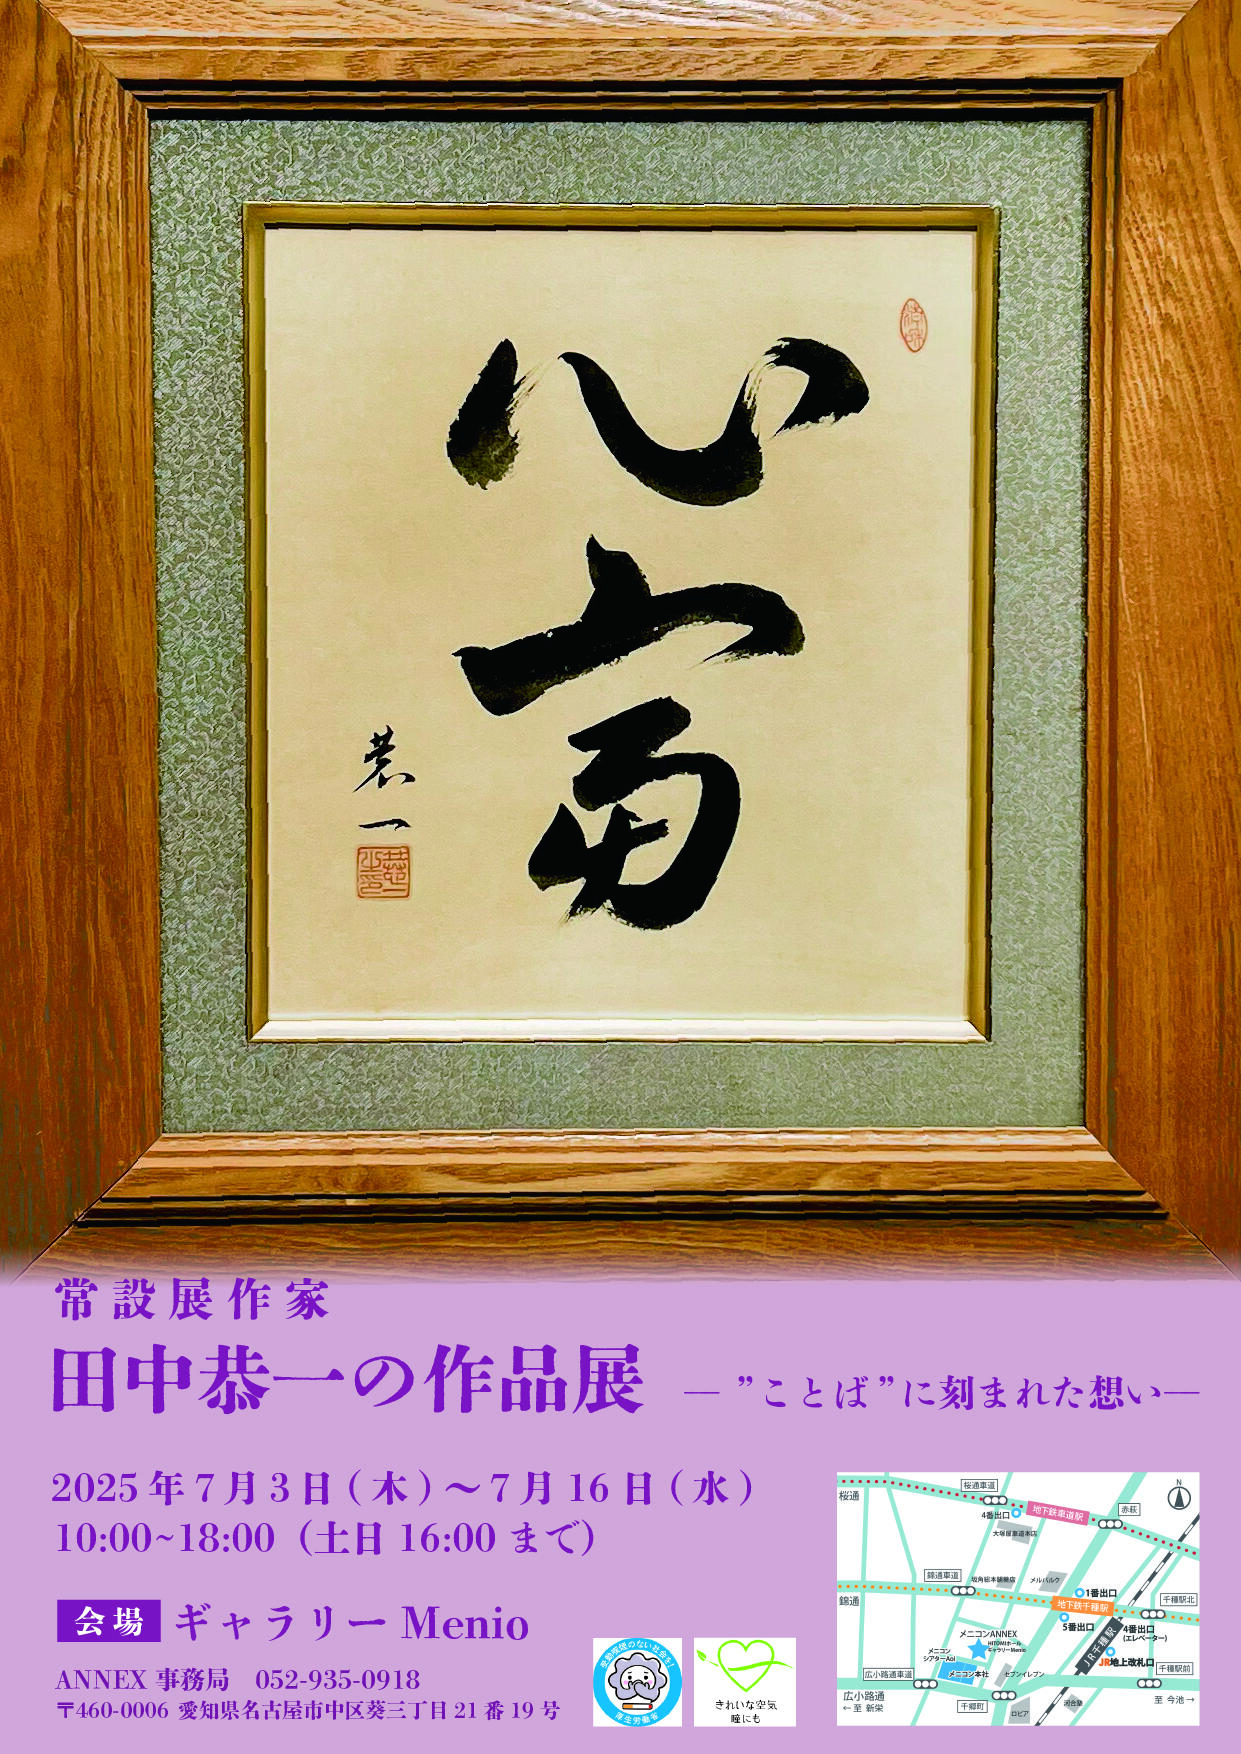 心
富
恭一
常設展作家
田中恭一の作品展 ―”ことば”に刻まれた想い―
2025年7月3日(木)～7月16日(水)
10:00~18:00（土日16:00まで）
会場 ギャラリーMenio
ANNEX事務局 052-935-0918
〒460-0006 愛知県名古屋市中区葵三丁目21番19号
受動喫煙のない社会を!
厚生労働省
きれいな空気
瞳にも
桜通
桜通車道
4番出口
地下鉄車道駅
赤萩
N
大塚屋車道本店
錦通車道
坂角総本舗葵店
メルパルク
1番出口
千種駅北
錦通
地下鉄千種駅
5番出口
4番出口
(エレベーター)
メニコンANNEX
HITOMIホール
ギャラリーMenio
メニコン
シアターAoi
JR千種駅
JR地上改札口
千種駅前
広小路通車道
メニコン本社
セブンイレブン
広小路通
←至 新栄
千郷町
ロピア
河合塾
至 今池→